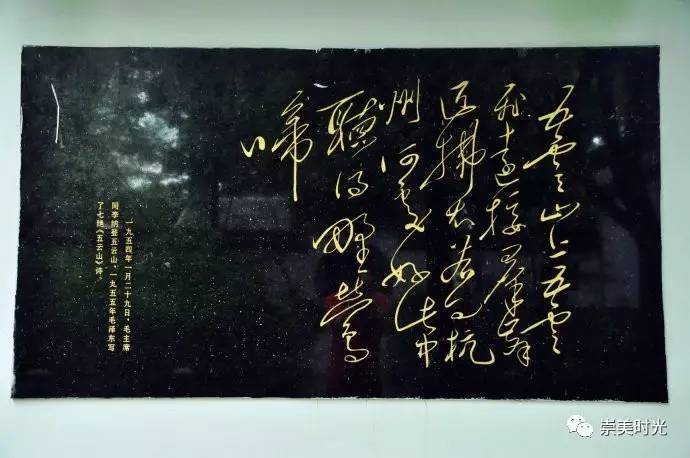 五雲山上五雲
飛遠接群峰
近拂堤若问杭
州何處好此中
聽得野鶯
啼
一九五四年一月二十九日，毛主席
同李讷登五云山，一九五五年毛泽东写
了七绝《五云山》诗。
崇美时光